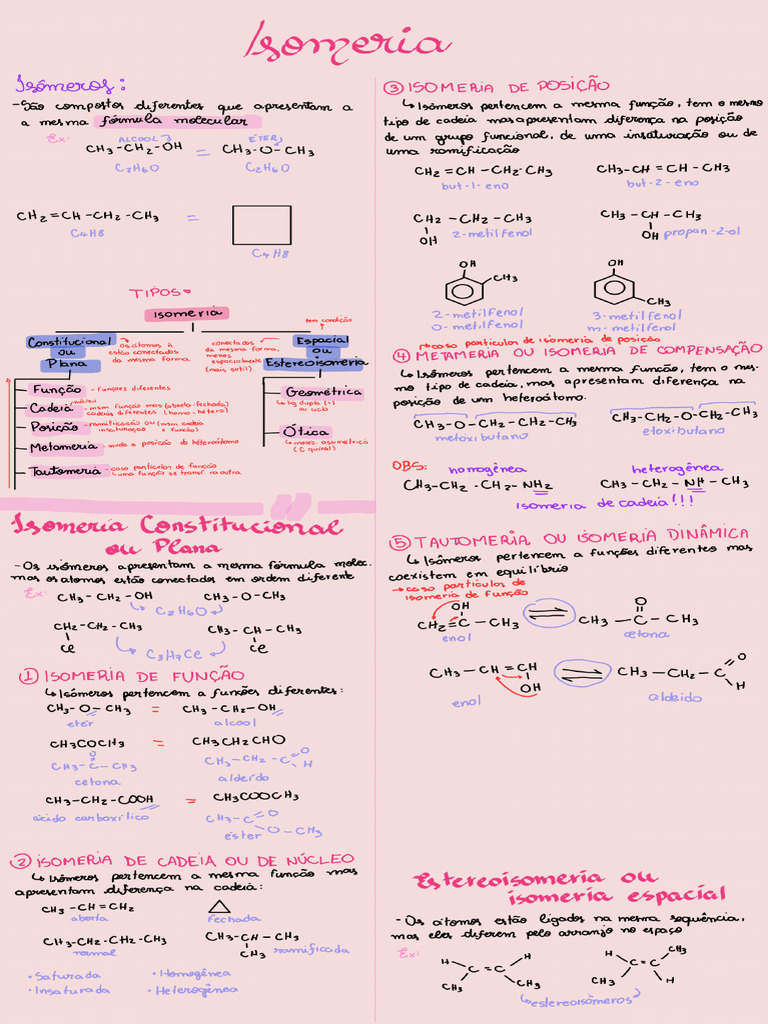 Isomeria
Isômeros:
-São compostos diferentes que apresentam a
a mesma fórmula molecular
Ex:
ALCOOL
ÉTER
CH3-CH2-OH = CH3-O-CH3
C2H6O C2H6O
CH2=CH-CH2-CH3 =
C4H8
C4H8
TIPOS
isomeria
tem condição
Constitucional
ou
Plana
os átomos ñ
estão conectados
da mesma forma
conectados
da mesma forma,
menos
espacialmente
(mais sutil)
Espacial
ou
Estereoisomeria
Função - funções diferentes
Cadeia
núcleo
- msm função mas (aberta-fechada)
cadeias diferentes (homo-hétero)
Posição - ramificação ou (msm cadeia
insaturação e função)
Metameria - muda a posição do heteroátomo
Tautomeria - caso particulos de função
- uma função se transf. na outra
Geométrica
lig dupla (=)
ou ciclo
Ótica
molec. assimétrica
(C quiral)
Isomeria Constitucional
ou Plana
- Os isômeros apresentam a mesma fórmula molec.
mas os átomos estão conectados em ordem diferente
Ex:
CH3-CH2-OH CH3-O-CH3
C2H6O
CH2-CH2-CH3 CH3-CH-CH3
Cl Cl
C3H7Cl
① ISOMERIA DE FUNÇÃO
Isômeros pertencem a funções diferentes:
CH3-O-CH3 = CH3-CH2-OH
eter alcool
CH3COCH3 = CH3CH2CHO
O
CH3-C-CH3
cetona
CH3-CH2-C O
H
aldeído
CH3-CH2-COOH = CH3COOCH3
ácido carboxílico
CH3-C O
O-CH3
éster
② ISOMERIA DE CADEIA OU DE NÚCLEO
Isômeros pertencem a mesma função mas
apresentam diferença na cadeia:
CH3-CH=CH2
aberta fechada
CH3-CH2-CH2-CH3 CH3-CH-CH3
CH3
normal ramificada
• Saturada • Homogênea
• Insaturada • Heterogênea
③ ISOMERIA DE POSIÇÃO
Isômeros pertencem a mesma função, tem o mesmo
tipo de cadeia mas apresentam diferença na posição
de um grupo funcional, de uma insaturação ou de
uma ramificação
CH2=CH-CH2-CH3 CH3-CH=CH-CH3
but-1-eno but-2-eno
CH2-CH2-CH3 CH3-CH-CH3
OH 2-metilfenol OH propan-2-ol
OH OH
CH3 CH3
2-metilfenol 3-metilfenol
o-metilfenol m-metilfenol
caso particulos de isomeria de posição
④ METAMERIA OU ISOMERIA DE COMPENSAÇÃO
Isômeros pertencem a mesma função, tem o mes-
mo tipo de cadeia, mas apresentam diferença na
posição de um heteroátomo.
CH3-O-CH2-CH2-CH3 CH3-CH2-O-CH2-CH3
metoxibutano etoxibutano
OBS: homogênea heterogênea
CH3-CH2-CH2-NH2 CH3-CH2-NH-CH3
isomeria de cadeia!!!
⑤ TAUTOMERIA OU ISOMERIA DINÂMICA
Isômeros pertencem a funções diferentes mas
coexistem em equilíbrio
caso particulos de
isomeria de função
OH O
CH2=C-CH3 CH3-C-CH3
enol cetona
CH3-CH=CH CH3-CH2-C O
OH H
enol aldeído
Estereoisomeria ou
isomeria espacial
- Os átomos estão ligados na mesma sequência,
mas eles diferem pelo arranjo no espaço
Ex:
H H H CH3
C=C C=C
CH3 CH3 CH3 H
estereoisômeros